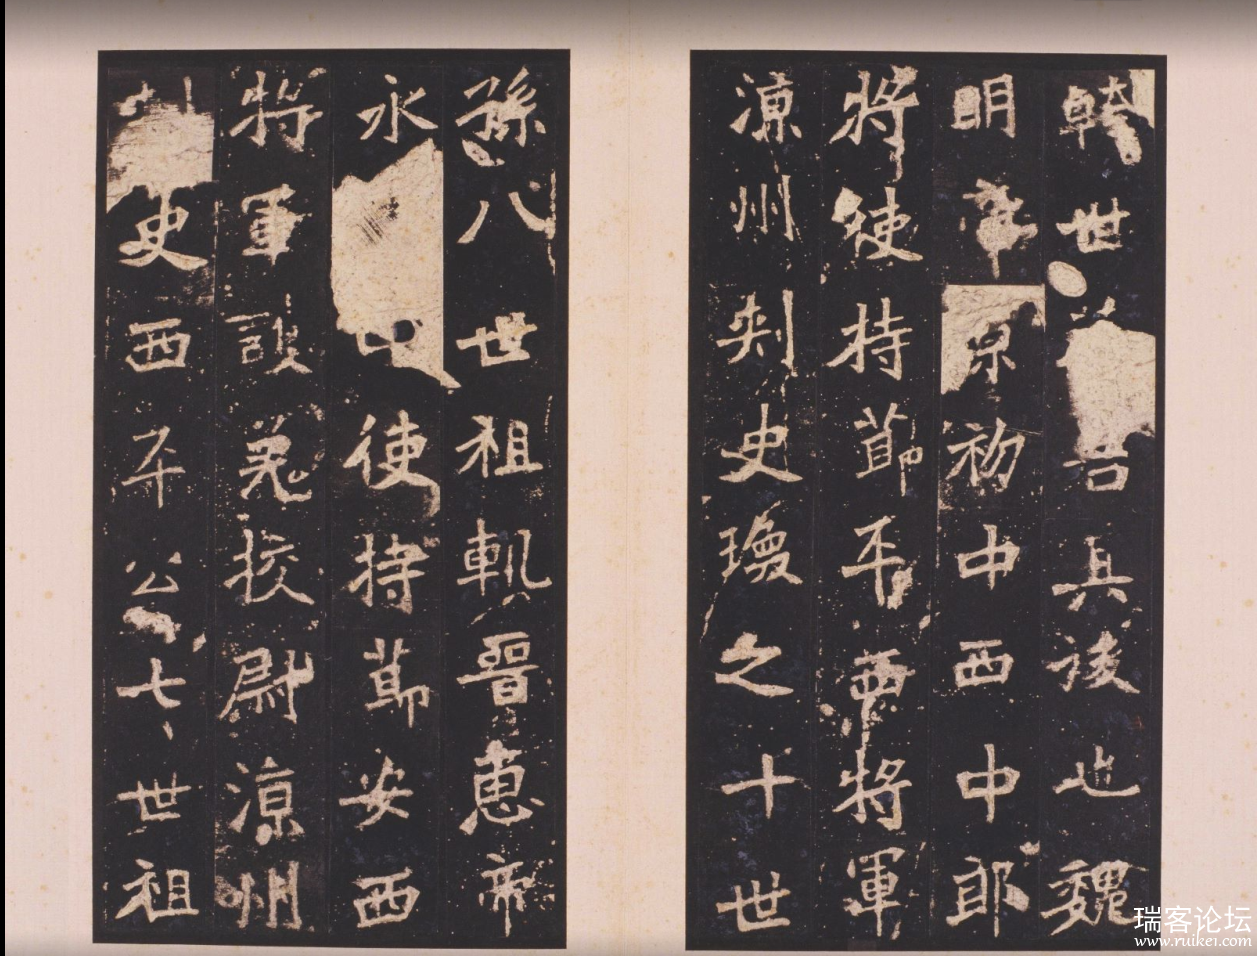 幹世君其後也魏
明帝景初中西中郎
將使持節平西將軍
涼州刾史瑍之十世
孫八世祖軌晉惠帝
永中使持節安西
將軍護羌校尉涼州
史西平公七世祖
瑞客论坛
www.ruike1.com